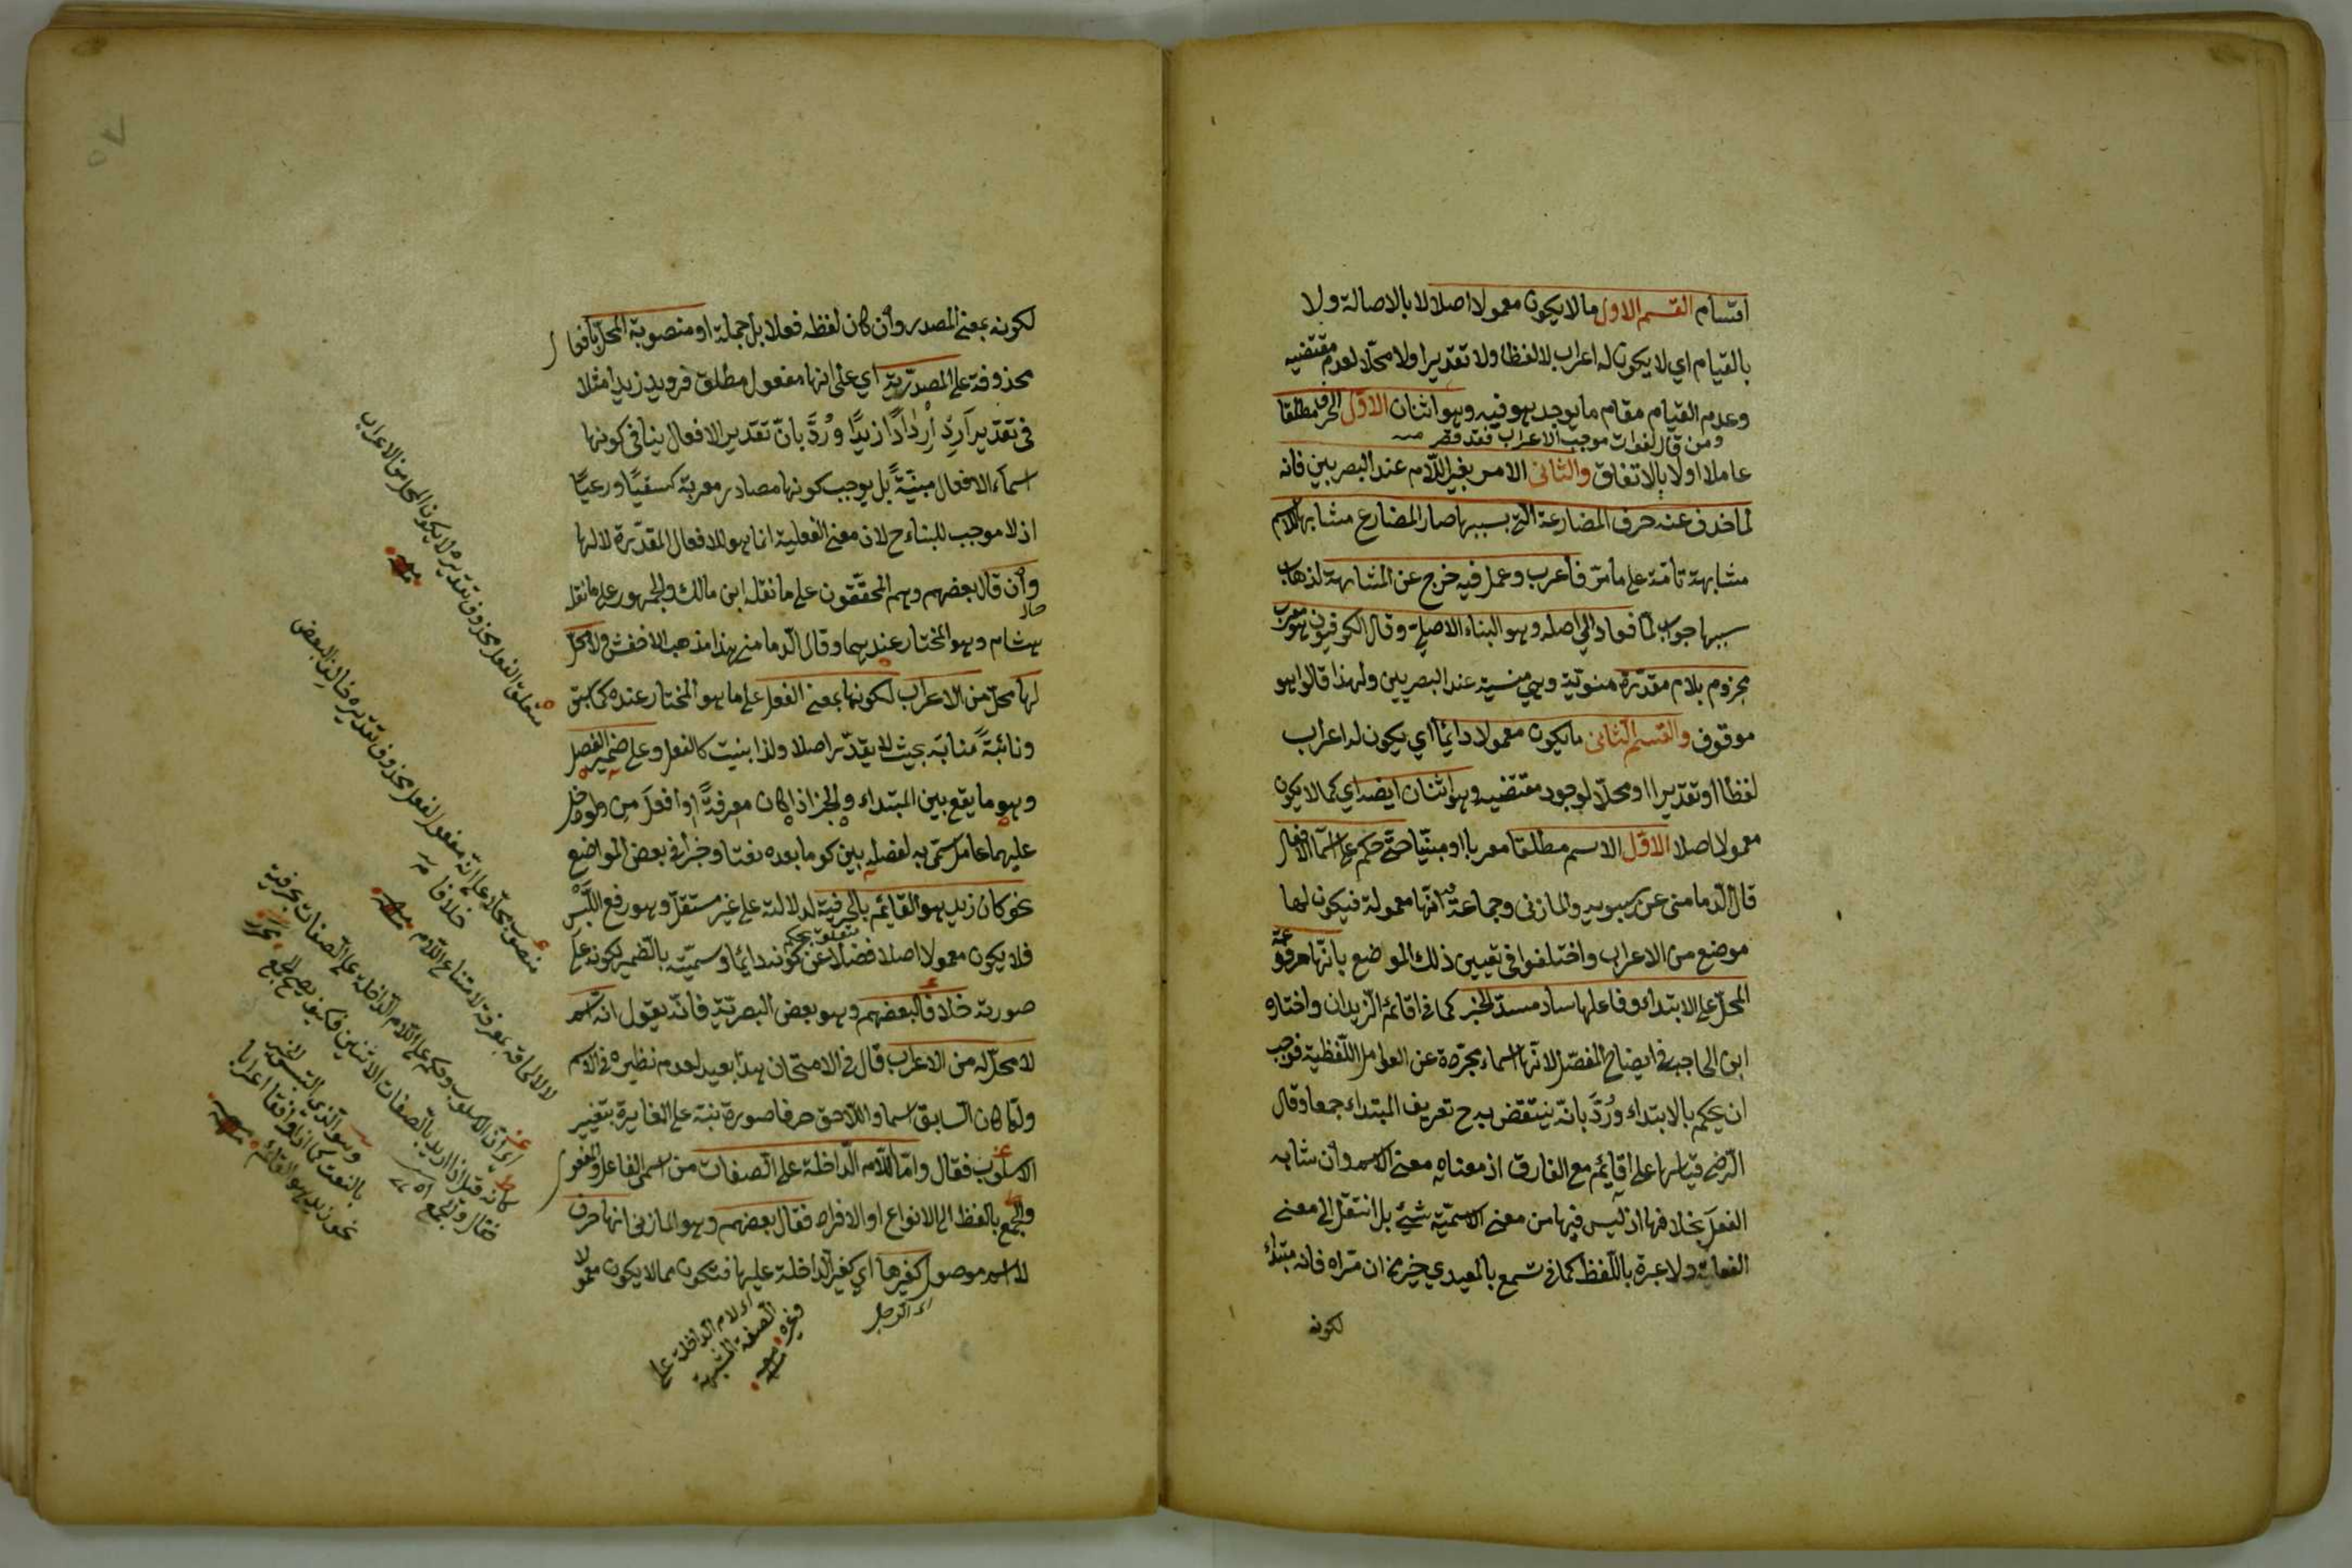 اقسام القسم الاول ما لا يكون معمولا اصلا لا بالاصالة ولا
بالقيام اي لا يكون له اعراب لا لفظا ولا تقديرا ولا محلا لعدم مقتضيه
وعدم القيام مقام ما يوجد هو فيه وهو اثنان الاول الحرف مطلقا
ومن قال لفوات موجب الاعراب فقد قصر
عاملا اولا بالاتفاق والثاني الامر بغير اللام عند البصريين فانه
لما حذف عنه حرف المضارعة التي بسببها صار المضارع مشابها للاسم
مشابهة تامة على ما مر فاعرب وعمل فيه خرج عن المشابهة لذهاب
سببها جواب لما فعاد الى اصله وهو البناء الاصلي وقال الكوفيون هو معرب
مجزوم بلام مقدرة منوية وهي منسية عند البصريين ولهذا قالوا هو
موقوف والقسم الثاني ما يكون معمولا دائما اي يكون له اعراب
لفظا او تقديرا او محلا لوجود مقتضيه وهو اثنان ايضا اي كما لا يكون
معمولا اصلا الاول الاسم مطلقا معربا او مبنيا حتى حكم على اسماء الافعال
قال الدماميني عن سيبويه والمازني وجماعة انها معمولة فيكون لها
موضع من الاعراب واختلفوا في تعيين ذلك الموضع بانها مرفوعة
المحل على الابتداء وفاعلها ساد مسد الخبر كما في اقائم الزيدان واختاره
ابن الحاجب في ايضاح المفصل لانها اسماء مجردة عن العوامل اللفظية فوجب
ان يحكم بالابتداء ورد بانه ينتقض به ح تعريف المبتداء جمعا وقال
الرضي قياسها على اقايم مع الفارق اذ معناه معنى الاسم وان شابه
الفعل بخلافها اذ ليس فيها من معنى الاسمية شيء بل انتقل الى معنى
الفعلية ولا عبرة باللفظ كما في تسمع بالمعيدي خير من ان تراه فانه مبتداء
لكونه
لكونه بمعنى المصدر وان كان لفظه فعلا بل جملة او منصوبة المحل بافعال
محذوفة على المصدرية اي على انها مفعول مطلق فرويد زيدا مثلا
في تقدير ارد اردادا زيدا ورد بان تقدير الافعال ينافي كونها
اسماء الافعال مبنية بل يوجب كونها مصادر معربة كسقيا ورعيا
اذ لا موجب للبناء ح لان معنى الفعلية انما هو للافعال المقدرة لا لها
وان قال بعضهم وهم المحققون على ما نقله ابن مالك والجمهور على ما نقله
هشام وهو المختار عندهما وقال الدماميني هذا مذهب الاخفش ولا محل
لها محل من الاعراب لكونها بمعنى الفعل على ما هو المختار عنده كما سبق
ونائبة منابه بحيث لا يقدر اصلا ولذا بنيت كالفعل وعلى ضمير الفصل
وهو ما يقع بين المبتداء والخبر اذا كان معرفة او افعل من ولو دخل
عليهما عامل سمي به لفصله بين كون ما بعده نعتا وخبرا في بعض المواضع
نحو كان زيد هو القائم بالحرفية لدلالته على غير مستقل وهو رفع اللبس
متعلق بحكم
فلا يكون معمولا اصلا فضلا عن كونه دائما وسميته بالضمير لكونه على
صورته خلافا لبعضهم وهو بعض البصرية فانه يقول انه اسم
لا محل له من الاعراب قال في الامتحان هذا بعيد لعدم نظيره في الاسم
ولما كان السابق اسما واللاحق حرفا صورة نبه على المغايرة بتغيير
الاسلوب فقال واما اللام الداخلة على الصفات من اسمي الفاعل والمفعول
والجمع بالنظر الى الانواع او الافراد فقال بعضهم وهو المازني انها حرف
لا اسم موصول كغيرها اي كغير الداخلة عليها فتكون مما لا يكون معمولا
كالرجل
اي لام الداخلة على
الصفة المشبهة
وغيره
متعلق الفعل محذوف تقديره لا يكون المحل من الاعراب
منصوب محلا على انه مفعول لفعل محذوف تقديره خالف البعض
خلافا
لا لالحاقه بمعرفة لامتناع اللام
اي ان الاسلوب وحكم على اللام الداخلة على الصفات بحرفية
كانه قيل اذا اريد بالصفات الاثنين فكيف يصح الجمع
فقال والجمع
وهو الذي التبس الخبر
بالنعت كما اذا توافقا اعرابا
نحو زيد هو القائم